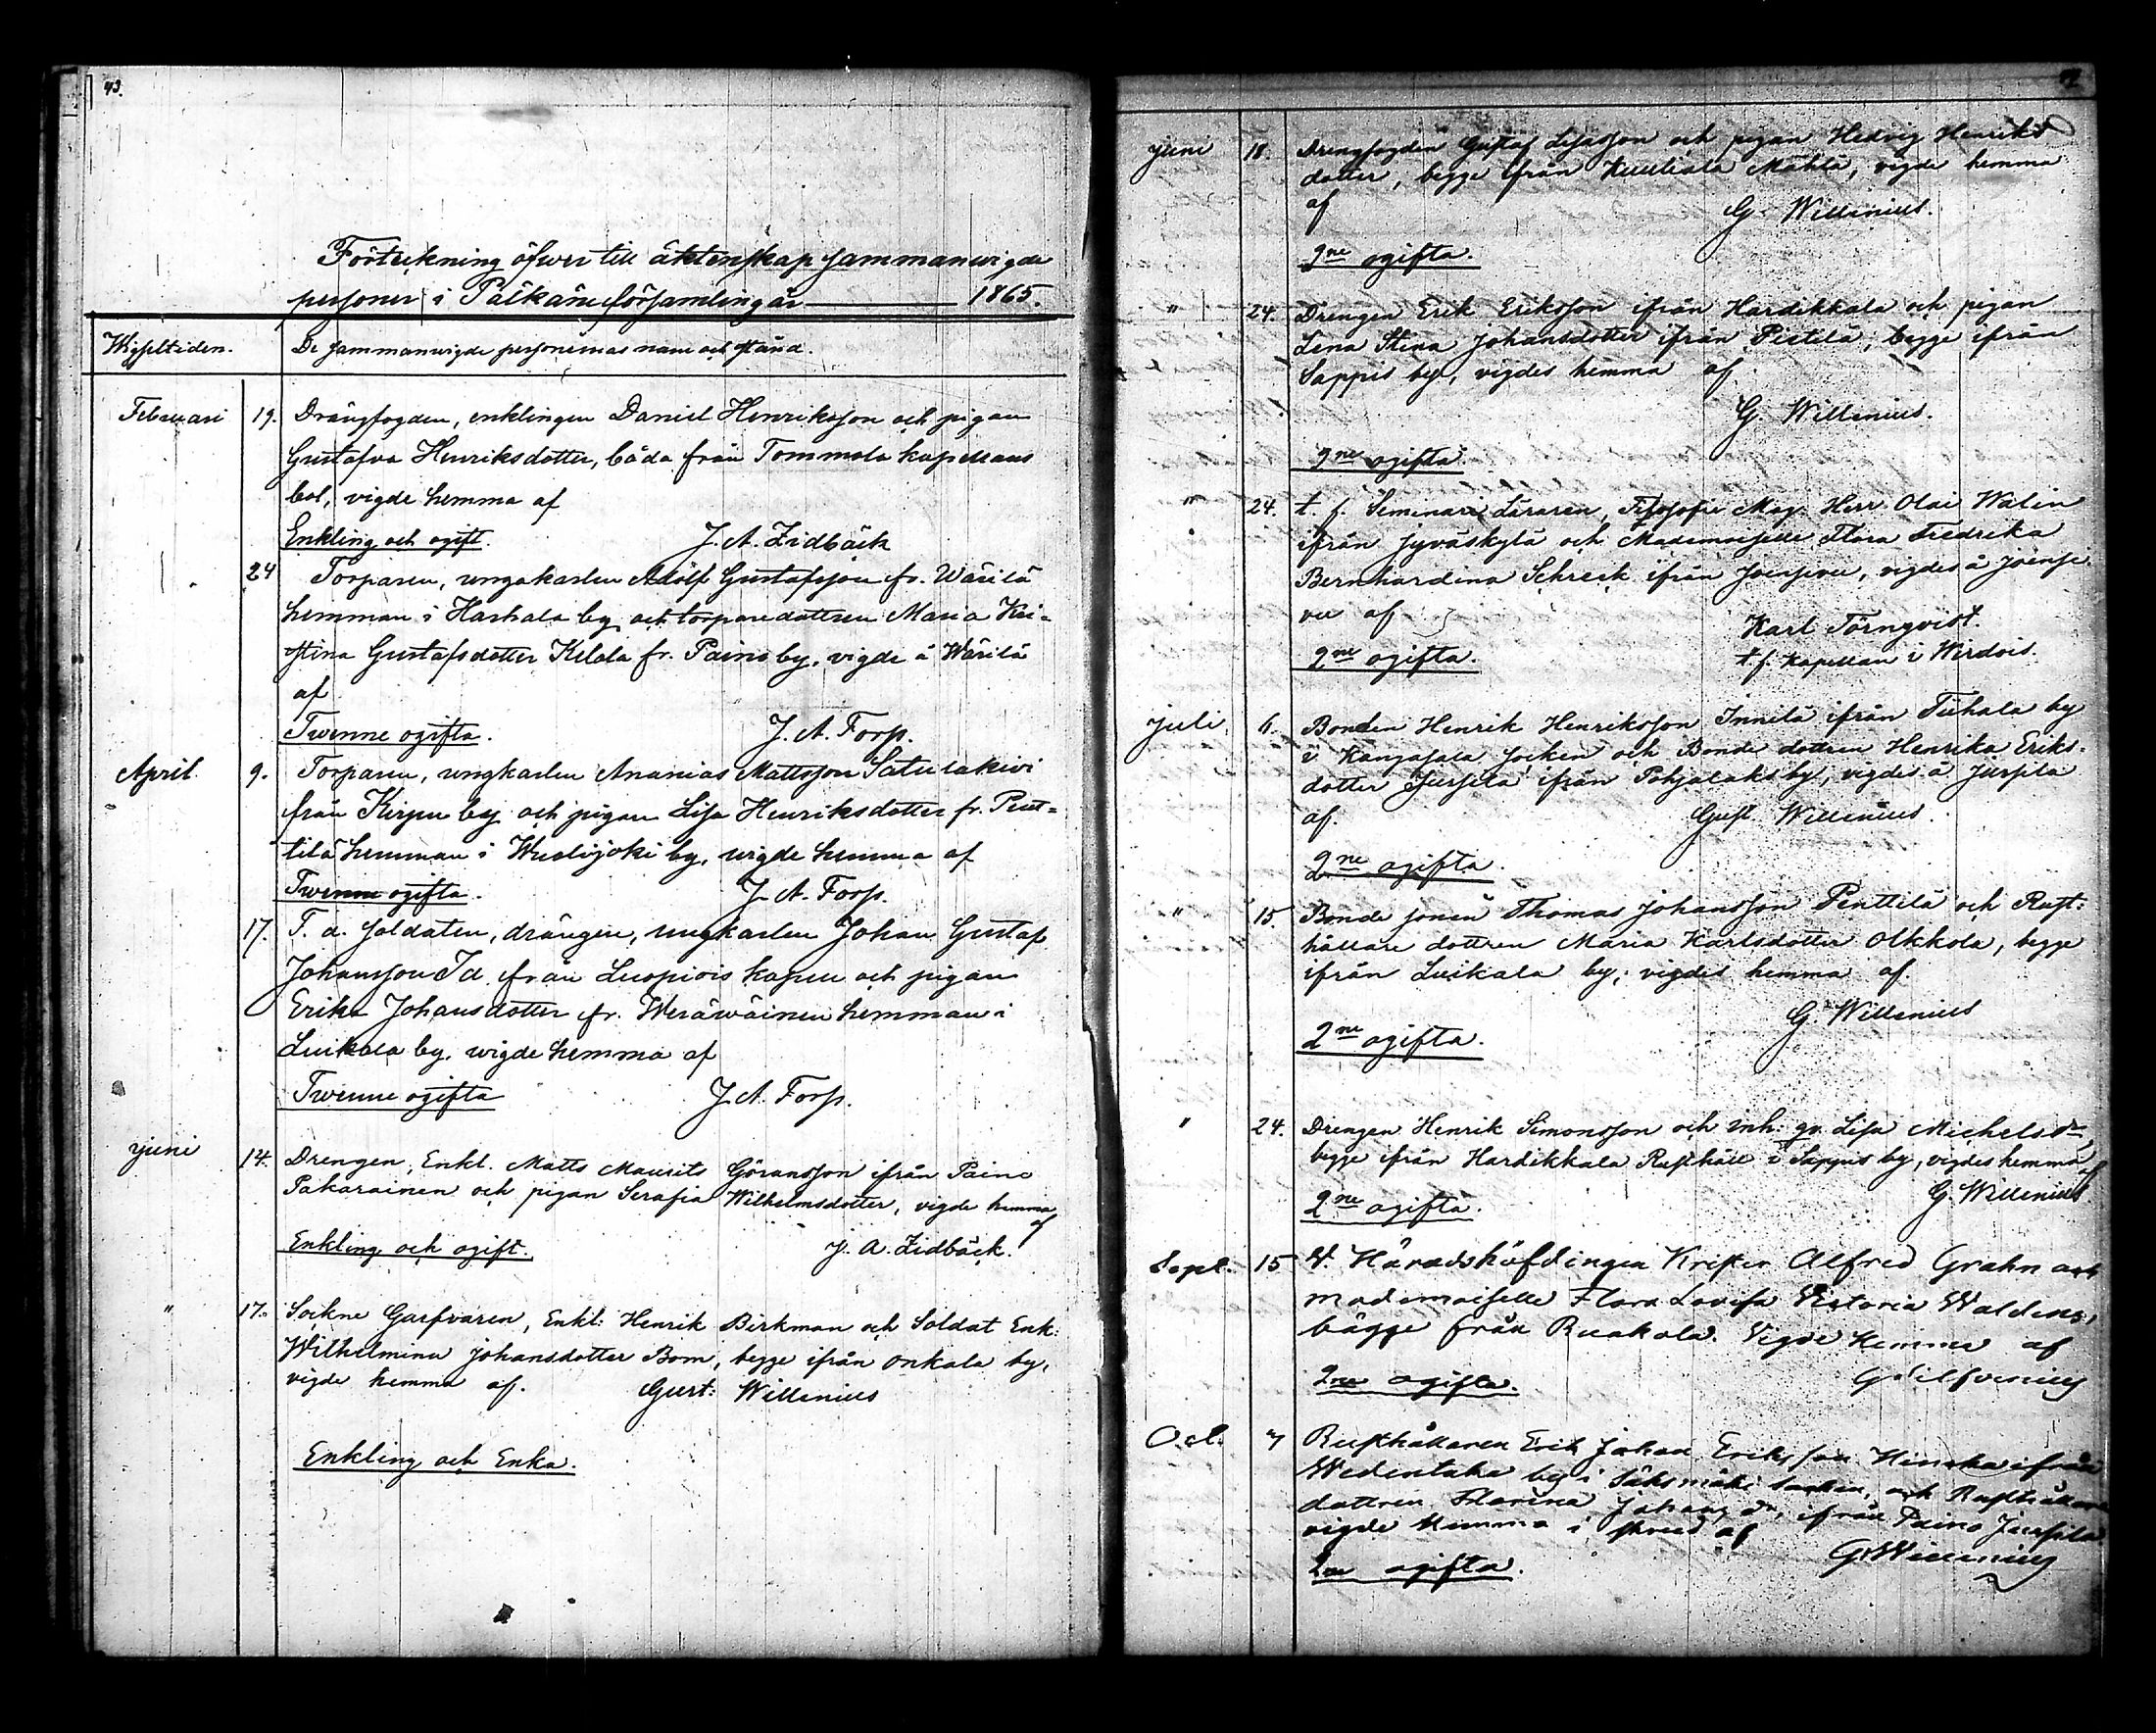 73.
Förteckning öfwer till äktenskap sammanwigde
personer i Pälkäne församling år 1865.
Wigseltiden.
De sammanwigde personernas namn och stånd.
Februari 19. Drängfogden, enklingen Daniel Henriksson och pigan
Gustafva Henriksdotter, båda från Tommola kapellans
bol, vigde hemma af
Enkling och ogift. J. A. Zidbäck
24 Torparen, ungakarlen Adolf Gustafsson fr. Wärilä
hemman i Harhala by och torparedottren Maria Kri-
stina Gustafsdotter Kelola fr. Painoby, vigde å Wärilä
af
Twenne ogifta. J. A. Forss.
April 9. Torparen, ungkarlen Ananias Mattsson Satulakivi
från Kirpu by och pigan Lisa Henriksdotter fr. Pent-
tilä hemman i Wuolijoki by, wigde hemma af
Twenne ogifta. J. A. Forss.
17. T. d. soldaten, drängen, ungkarlen Johan Gustaf
Johansson Id från Luopiois kapell och pigan
Erika Johansdotter fr. Weräwäinen hemman i
Luikala by, wigde hemma af
Twenne ogifta J. A. Forss.
Juni 14. Drengen, Enkl. Matts Maurits Göransson ifrån Paino
Pakarainen och pigan Serafia Wilhelmsdotter, vigde hemma
af
Enkling och ogift. J. A. Zidbäck.
" 17. Sockne Garfvaren, Enkl: Henrik Birkman och Soldat Enk:
Wilhelmina Johansdotter Bom, begge ifrån Onkala by,
vigde hemma af. Gust: Willenius
Enkling och Enka.
Juni 18. Drengfogden Gustaf Lisasson och pigan Hedvig Henriks
dotter, begge ifrån Kuuliala Mähtä, vigde hemma
af G. Willenius.
2ne ogifta.
" 24. Drengen Erik Eriksson ifrån Hardikkala och pigan
Lena Stina Johansdotter ifrån Pistilä, begge ifrån
Sappis by, vigdes hemma af
G. Willenius.
2ne ogifta.
" 24. t. f. Seminarii Läraren, Filosofie Mag. Herr Olai Walin
ifrån Jyväskylä och Mademoiselle Flora Fredrika
Bernhardina Schreck ifrån Joensuu, vigdes å Joensu
uu af Karl Törnqvist.
2ne ogifta. t. f. Kapellan i Wirdois.
Juli 6. Bonden Henrik Henriksson Innilä ifrån Tiihala by
i Kangasala socken och Bonde dottren Henrika Eriks-
dotter Jussila ifrån Pohjalaks by, vigdes å Jussila
af. Gust. Willenius.
2ne ogifta.
" 15 Bonde sonen Thomas Johansson Penttilä och Rust:
hållare dottren Maria Karlsdotter Olkkola, begge
ifrån Luikala by, vigdes hemma af.
G. Willenius
2ne ogifta.
" 24. Drengen Henrik Simonsson och inh: qv. Lisa Michelsdr
begge ifrån Hardikkala Rusthåll i Sappis by, vigdes hemma
af
2ne ogifta. G. Willenius
Sept. 15 V. Häradshöfdingen Krister Alfred Grahn och
mademoiselle Flora Lovisa Victoria Waldens,
bägge från Ruokola. Vigde hemma af
2ne ogifta.
Oct. 7 Rusthållaren Erik Johan Eriksson Hinska ifrån
Wedentaka by i Sääksmäki socken, och Rusthållare
dottren Florina Johansdr, ifrån Paino Jussila
vigde hemma i af
2ne ogifta. G. Willenius